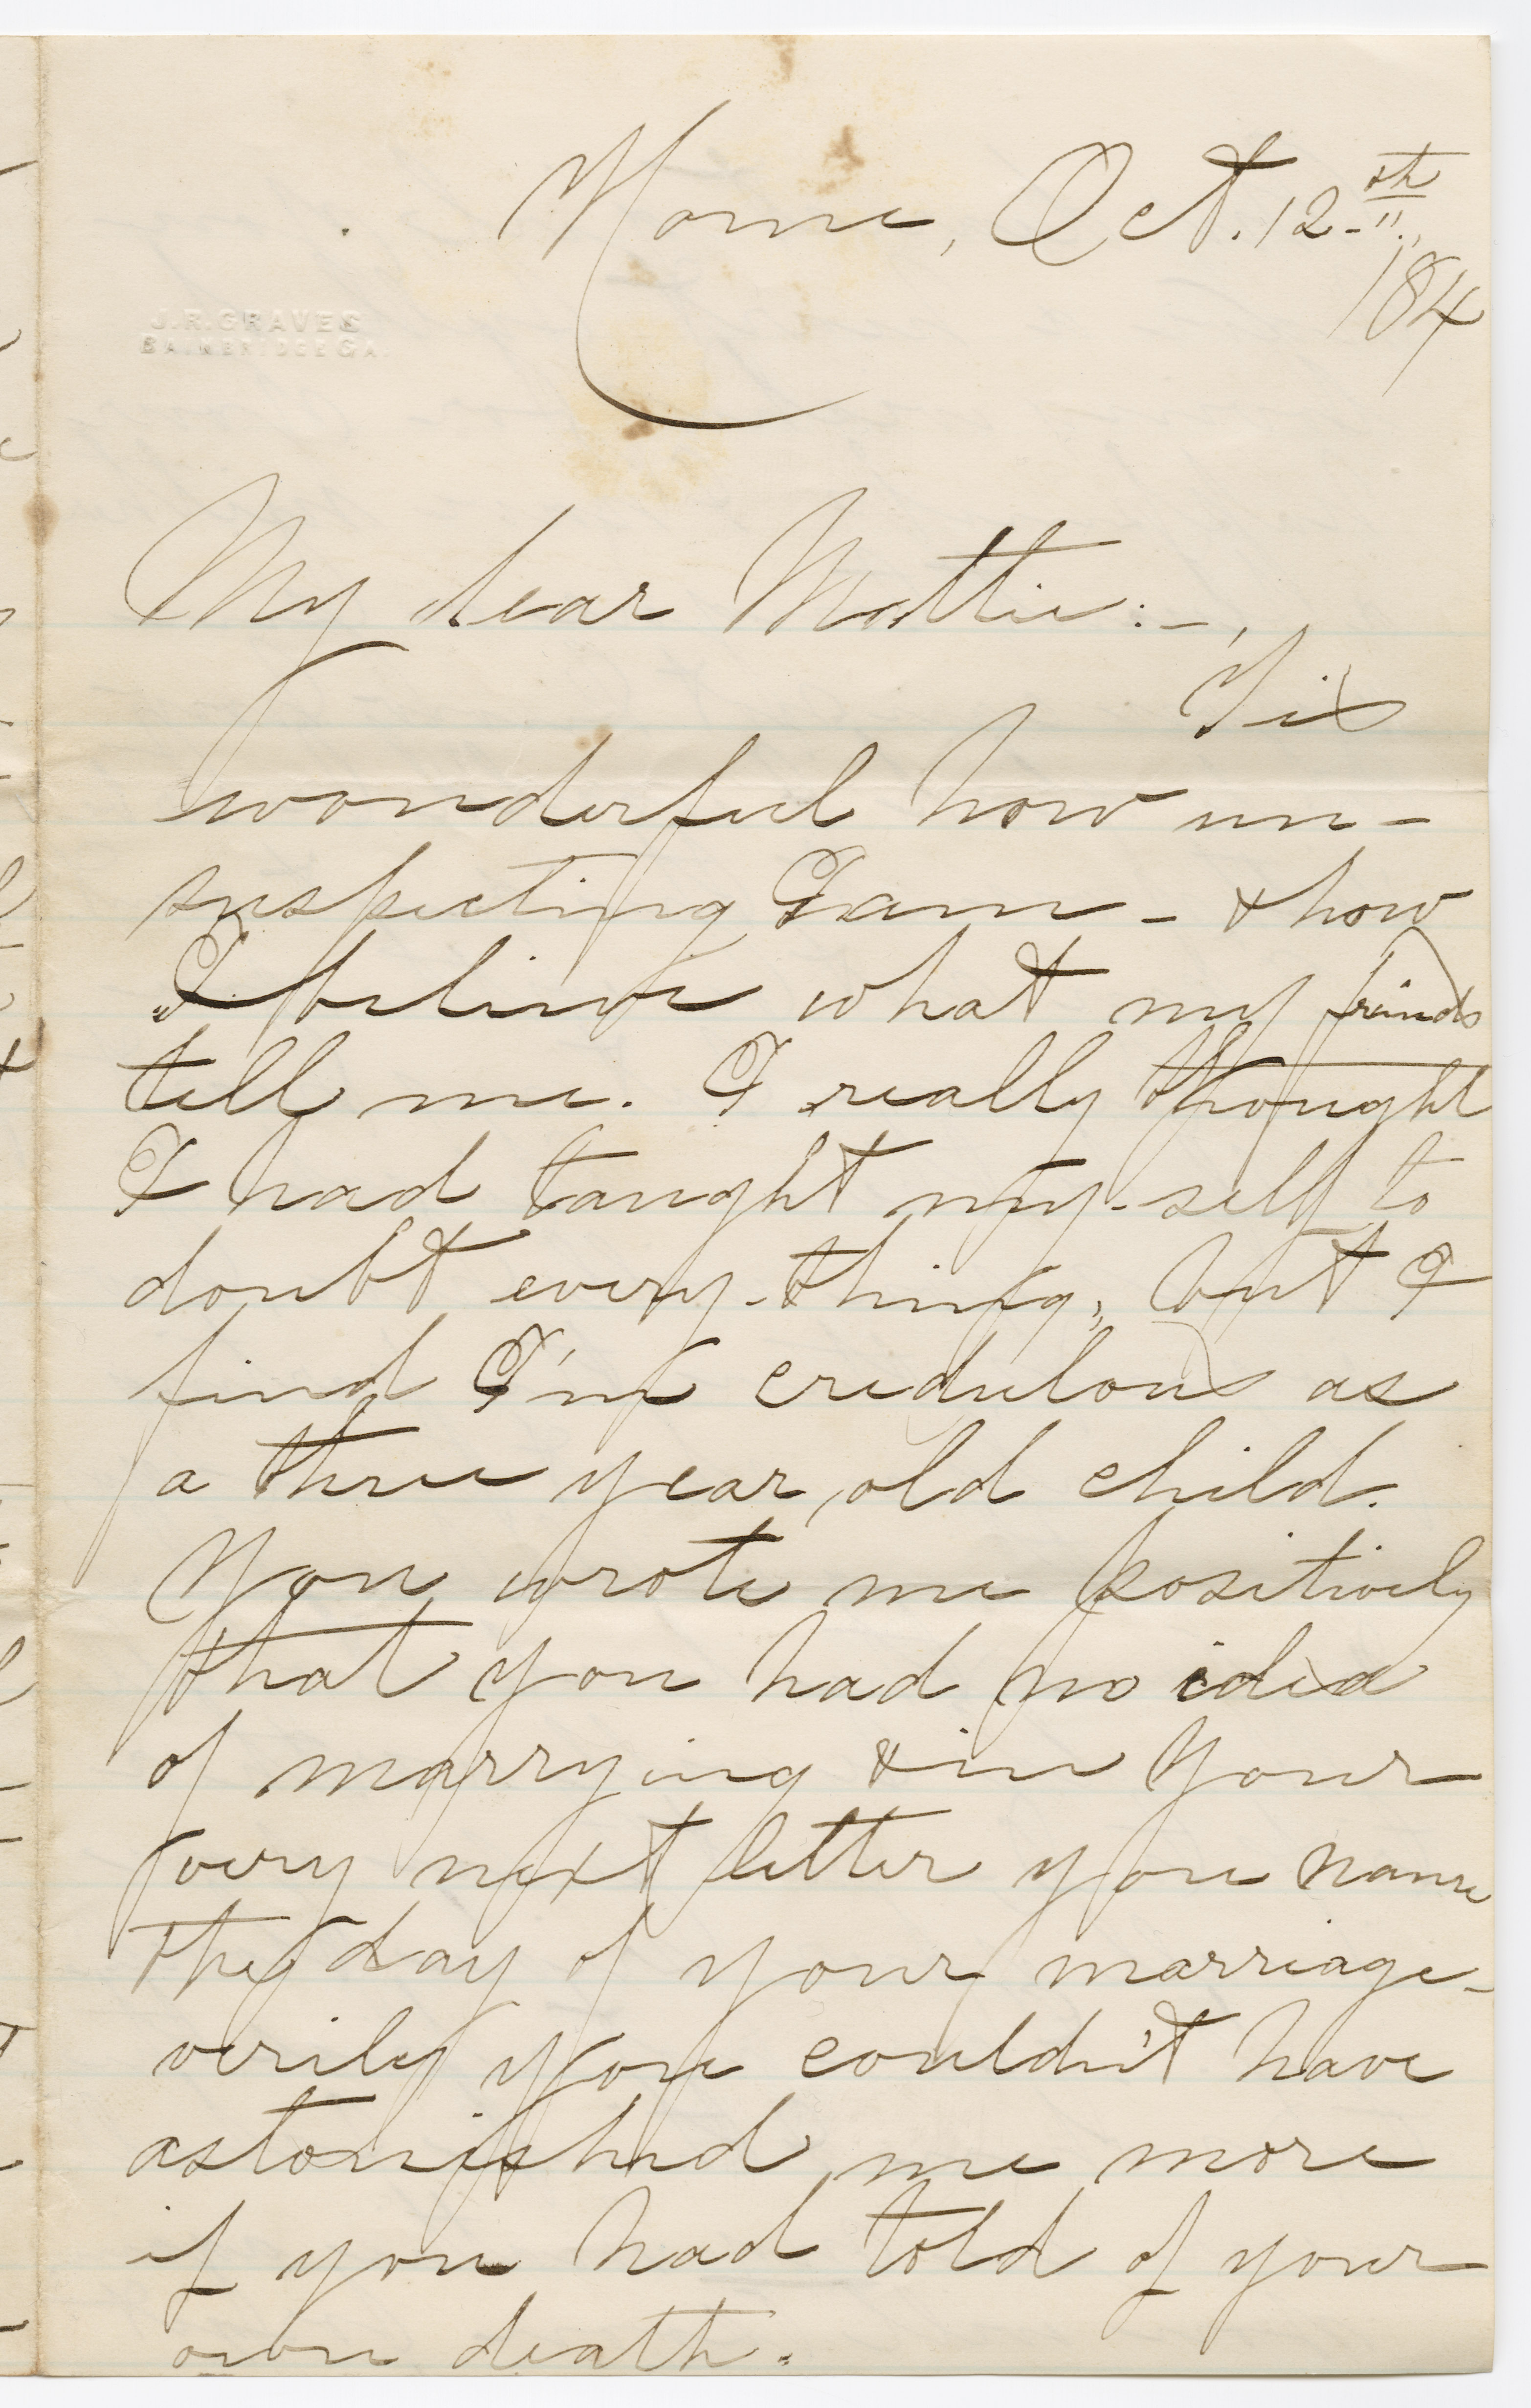 Home, Oct. 12-th
/84
J.R. GRAVES
BAINBRIDGE GA.
My dear Mattie:-,
'Tis
wonderful how un-
suspecting I am - & how
I believe what my friends
tell me. I really thought
I had taught my-self to
doubt every-thing, but I
find I'm credulous as
a three year old child.
You wrote me positively
that you had no idea
of marrying & in your
very next letter you name
the day of your marriage-
verily you couldn't have
astonished me more
if you had told of your
own death.